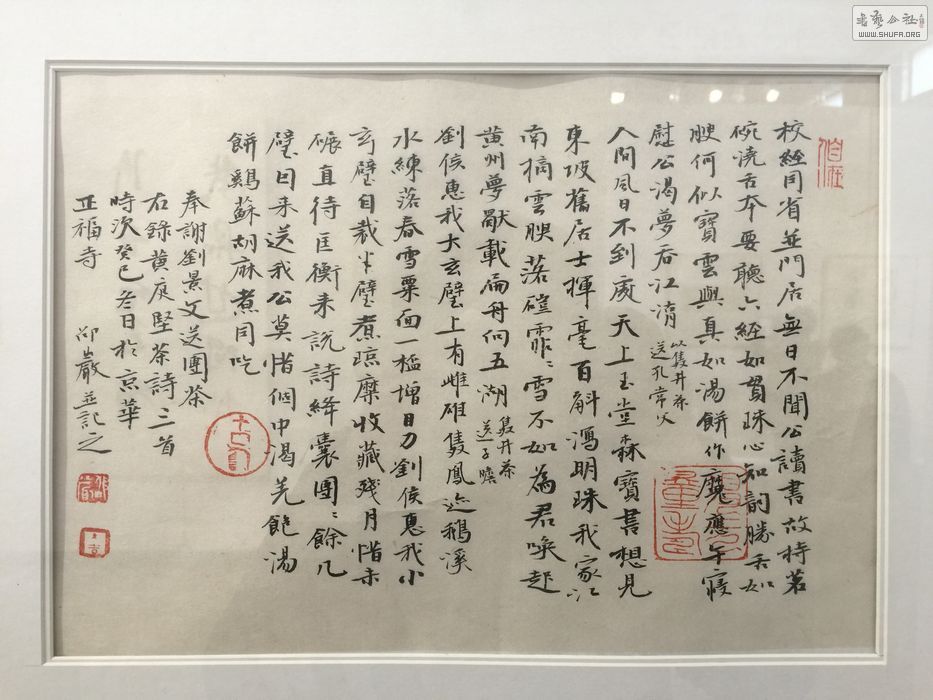 校經同省並門居無日不聞公讀書故持茗
碗澆舌本要聽六經如貫珠心知韻勝舌知
腴何似寶雲與真如湯餅作魔應午寢
慰公渴夢吞江湖
以雙井茶
送孔常父
人間風日不到處天上玉堂森寶書想見
東坡舊居士揮毫百斛瀉明珠我家江
南摘雲腴落磑霏〻雪不如為君喚起
黃州夢獨載扁舟向五湖
雙井茶
送子瞻
劉侯惠我大玄璧上有雌雄雙鳳迹鵝溪
水練落春雪粟面一杯增目力劉侯惠我小
玄璧自裁半璧煮瓊糜收藏殘月惜未
碾直待匡衡來說詩絳囊團〻餘几
璧因來送我公莫惜個中渴羌飽湯
餅雞蘇胡麻煮同吃
奉謝劉景文送團茶
右錄黃庭堅茶詩三首
時次癸巳冬日於京華
正福寺 嚴並記之
WWW.SHUFA.ORG